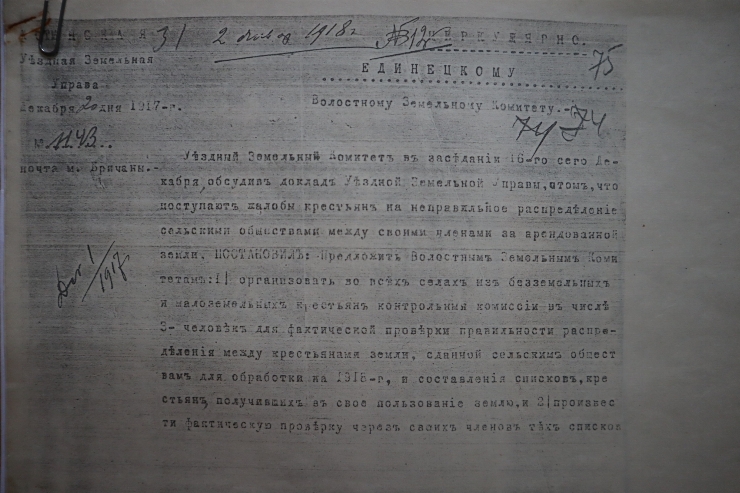 31 2 янв 1918г №12 ЦИРКУЛЯРНО.
Уѣздная Земельная 75
Управа ЕДИНЕЦКОМУ
Декабря 20 дня 1917-г. Волостному Земельному Комитету.-
№ 1143. 74
почта м. Бричаны.-
Уѣздный Земельный Комитетъ въ засѣданіи 16-го сего Де-
кабря, обсудивъ докладъ Уѣздной Земельной Управы, отомъ, что
поступаютъ жалобы крестьянъ на неправильное распредѣленіе
сельскими обществами между своими членами за арендованной
земли, ПОСТАНОВИЛЪ: Предложить Волостнымъ Земельнымъ Коми
тетамъ: 1) организовать во всѣхъ селахъ изъ безземельныхъ
и малоземельныхъ крестьянъ контрольныя комиссіи въ числѣ
3- человѣкъ для фактической провѣрки правильности распре-
дѣленія между крестьянами земли, сданной сельскимъ общест
вамъ для обработки на 1918-г, и составленія списковъ, кре
стьянъ, получившихъ въ свое пользованіе землю, и 2) произвес
ти фактическую провѣрку черезъ своихъ членовъ тѣхъ списков
1/1917